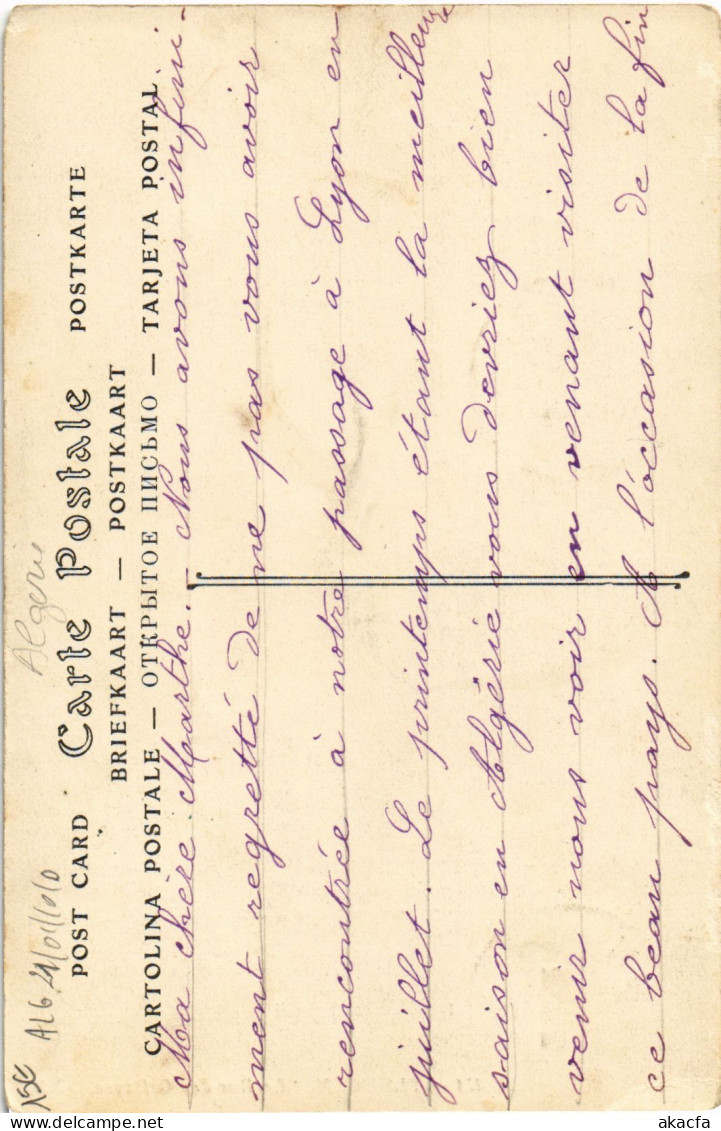 15€
ALG 21/01/010
Algerie
POST CARD Carte Postale POSTKARTE
BRIEFKAART — POSTKAART
CARTOLINA POSTALE — ОТКРЫТОЕ ПИСЬМО — TARJETA POSTAL
Ma chère Marthe. – Nous avons infini-
ment regretté de ne pas vous avoir
rencontrée à notre passage à Lyon en
juillet. Le printemps étant la meilleure
saison en Algérie vous devriez bien
venir nous voir en venant visiter
ce beau pays. A l'occasion de la fin
www.delcampe.net
akacfa